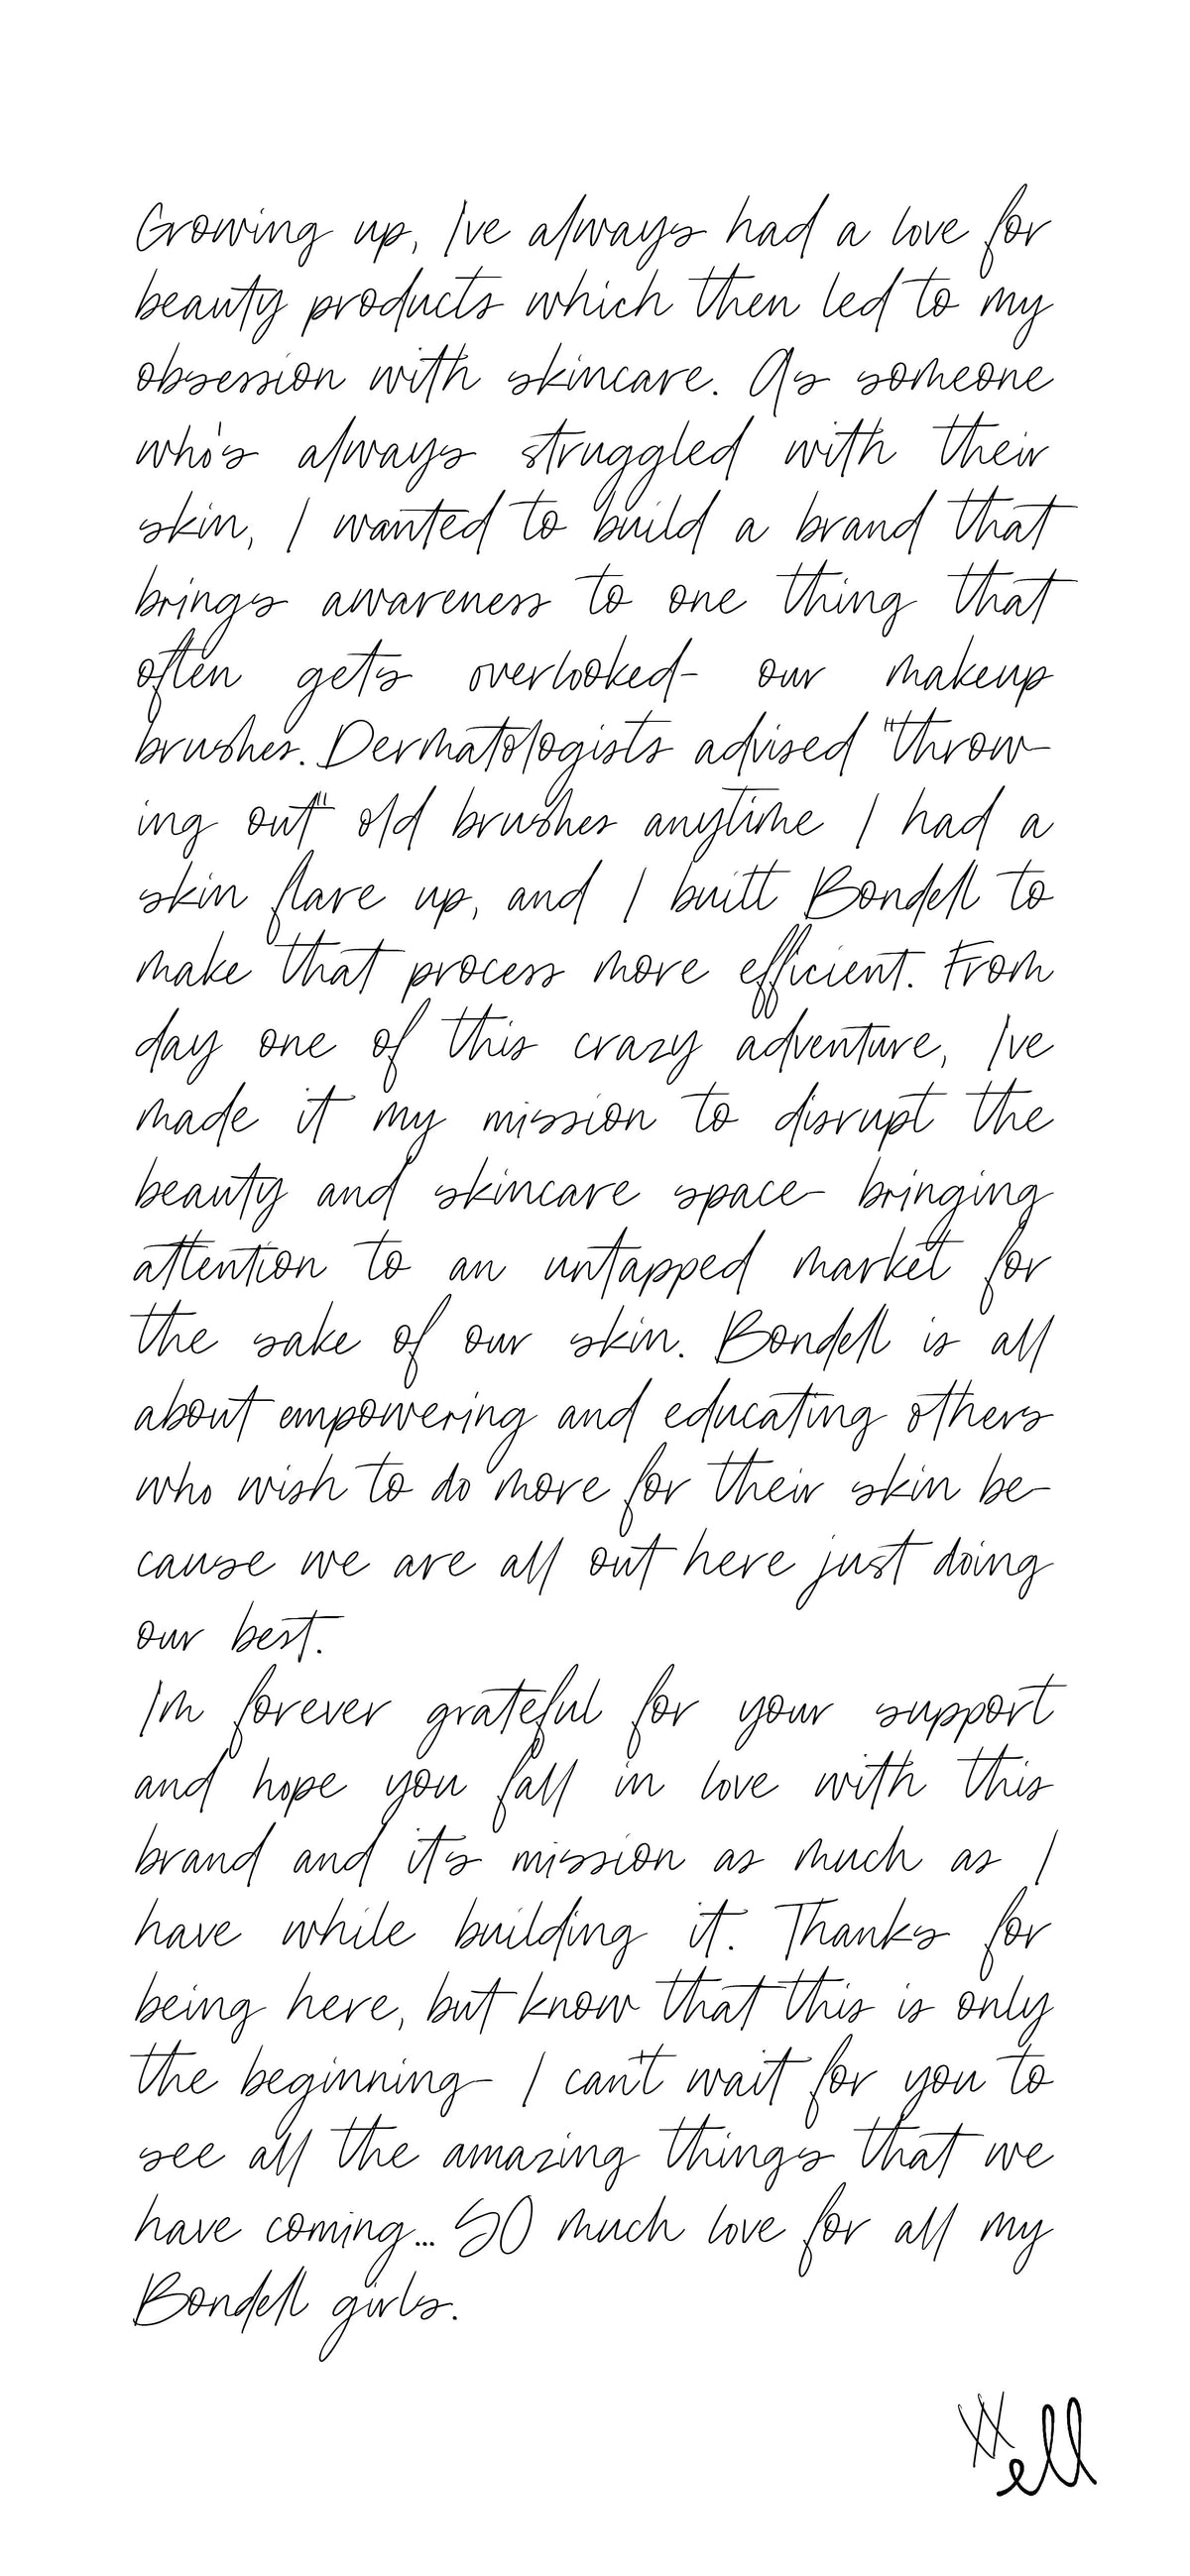 Growing up, I've always had a love for
beauty products which then led to my
obsession with skincare. As someone
who's always struggled with their
skin, I wanted to build a brand that
brings awareness to one thing that
often gets overlooked- our makeup
brushes. Dermatologists advised "throw-
ing out" old brushes anytime I had a
skin flare up, and I built Bondell to
make that process more efficient. From
day one of this crazy adventure, I've
made it my mission to disrupt the
beauty and skincare space- bringing
attention to an untapped market for
the sake of our skin. Bondell is all
about empowering and educating others
who wish to do more for their skin be-
cause we are all out here just doing
our best.
I'm forever grateful for your support
and hope you fall in love with this
brand and it's mission as much as I
have while building it. Thanks for
being here, but know that this is only
the beginning- I can't wait for you to
see all the amazing things that we
have coming... SO much love for all my
Bondell girls.
XX
ell